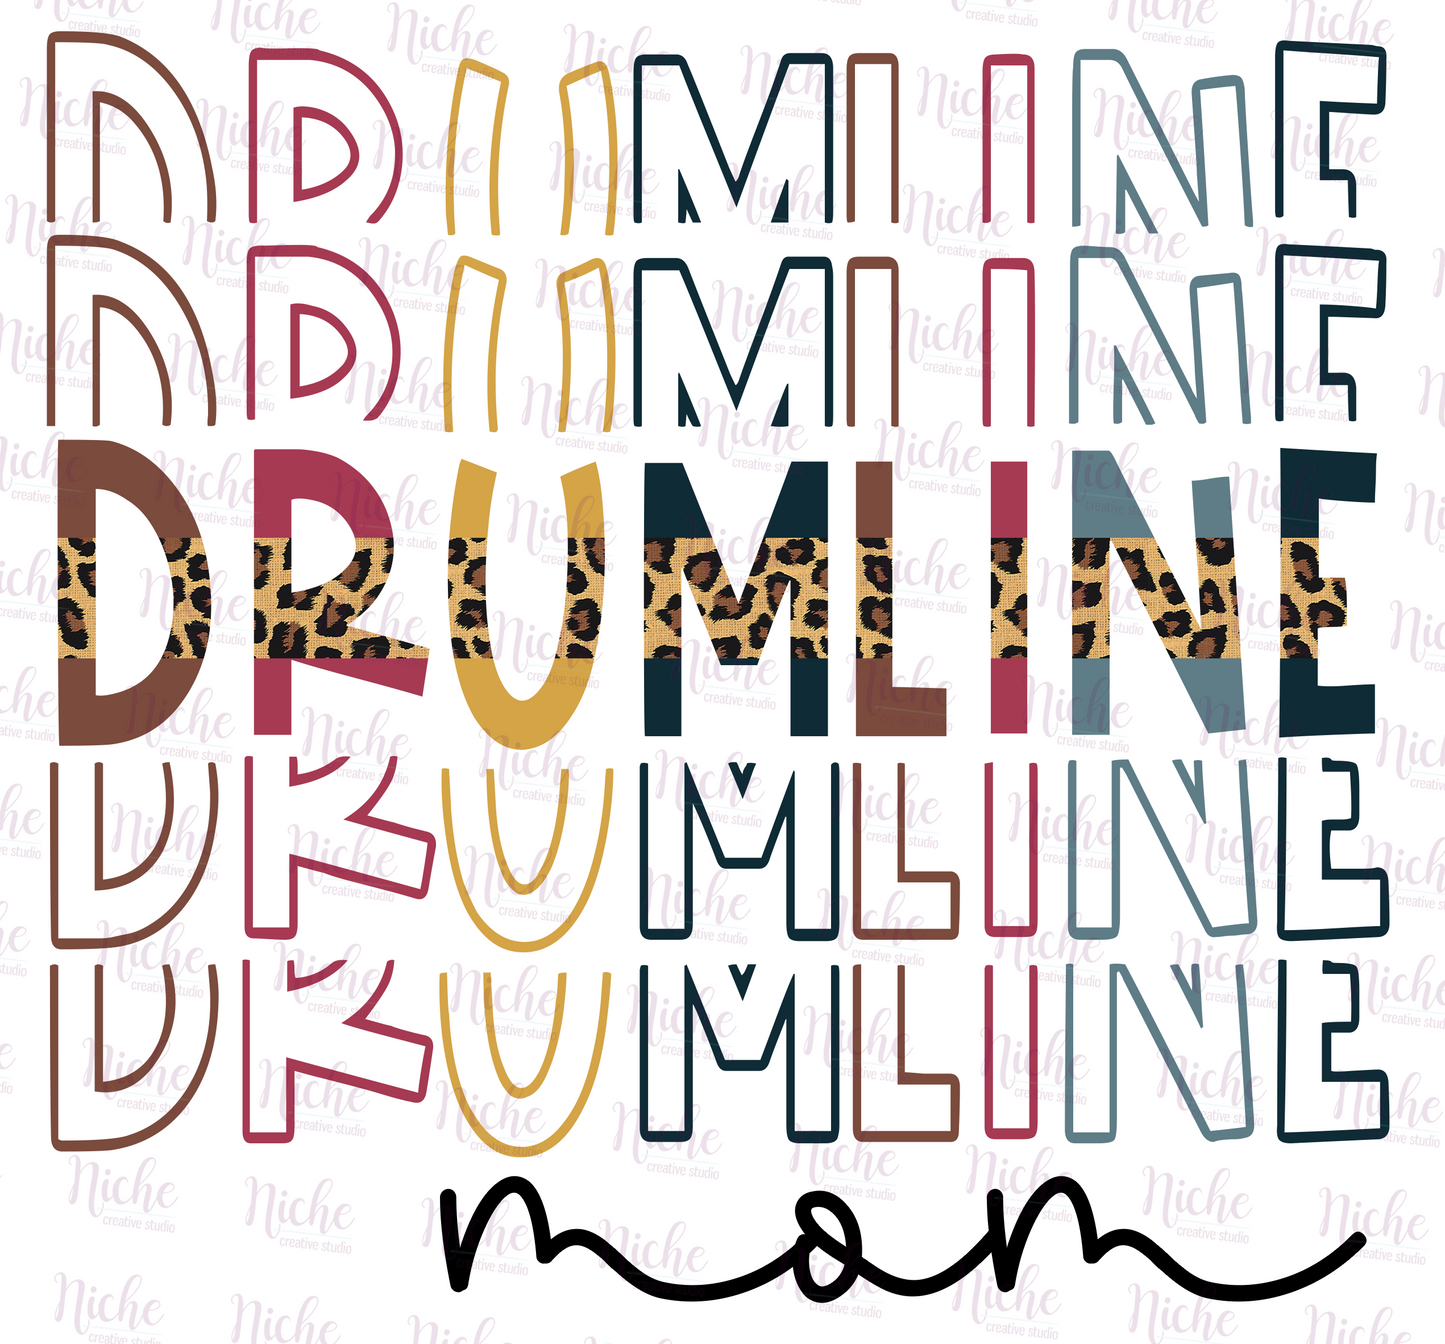 DRUMLINE
DRUMLINE
DRUMLINE
DRUMLINE
DRUMLINE
mom
Niche
creative studio